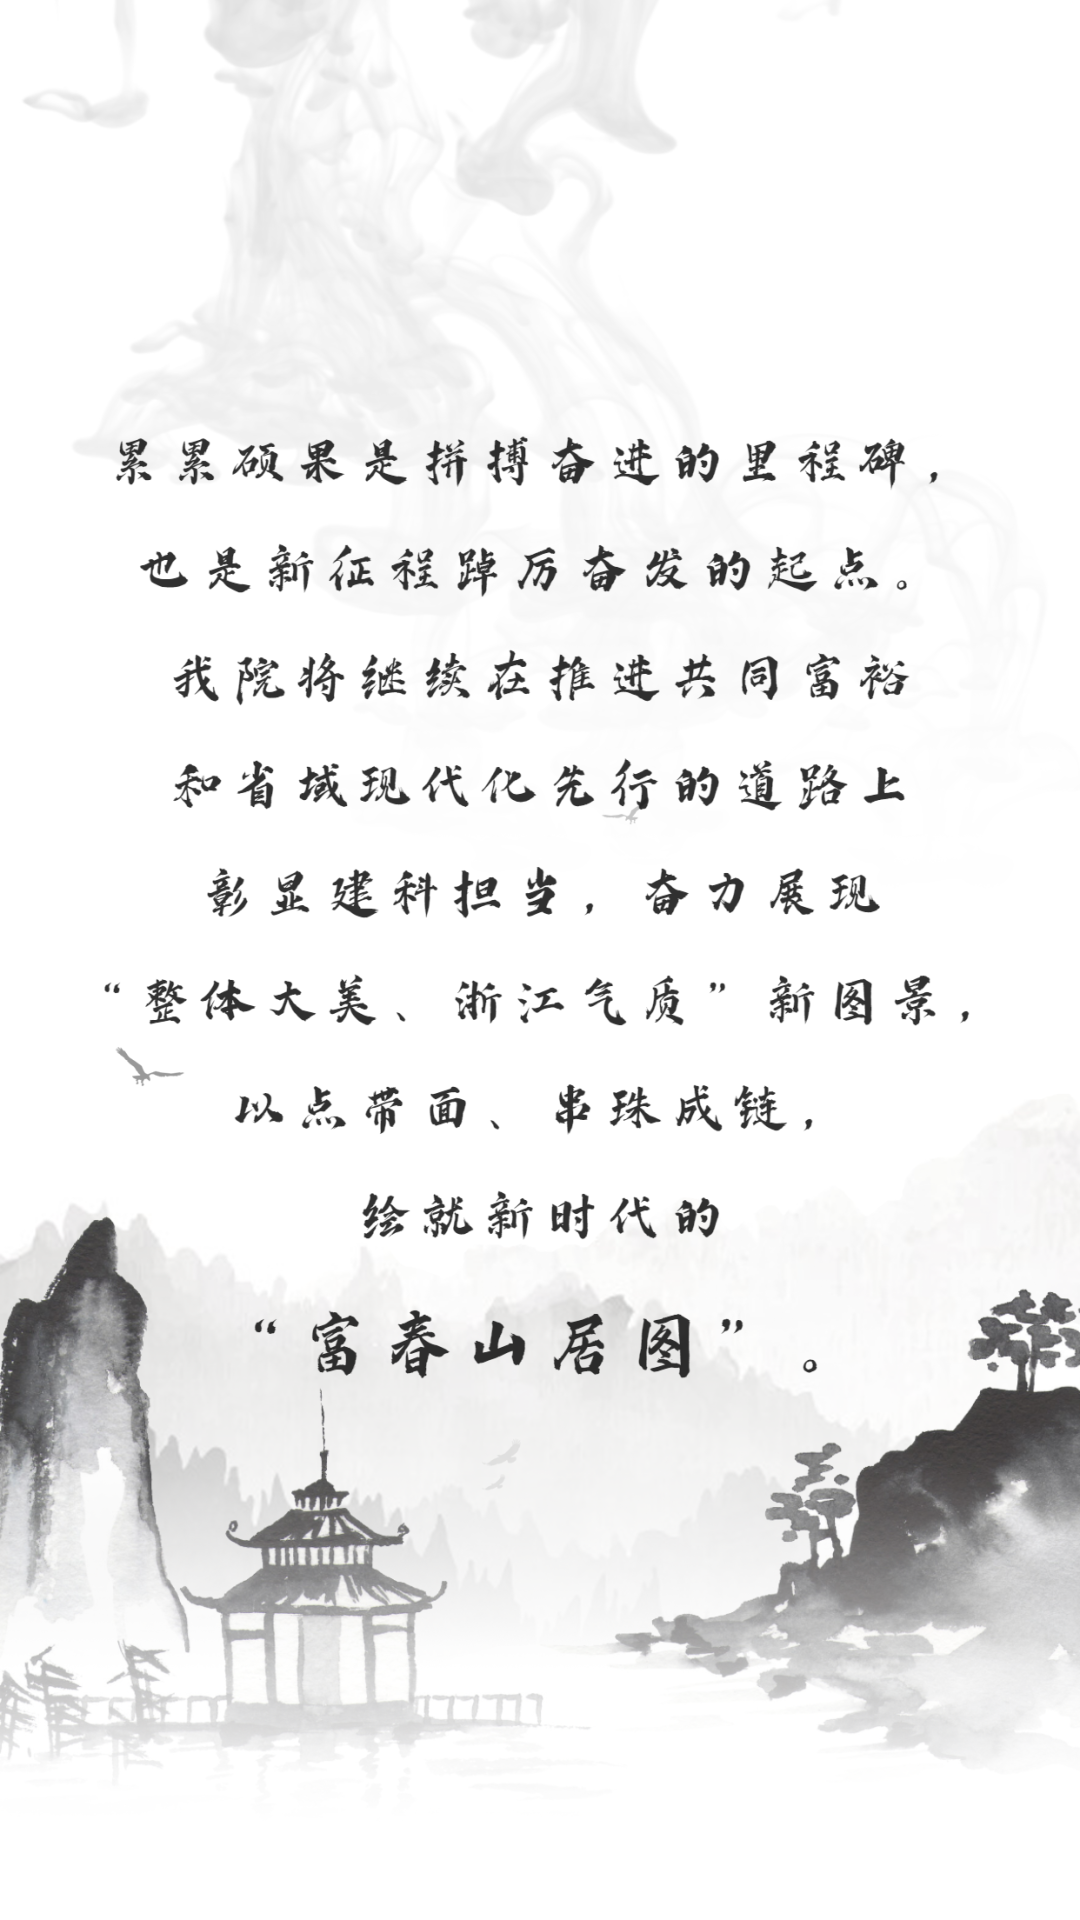 累累硕果是拼搏奋进的里程碑，
也是新征程踔厉奋发的起点。
我院将继续在推进共同富裕
和省域现代化先行的道路上
彰显建科担当，奋力展现
“整体大美、浙江气质”新图景，
以点带面、串珠成链，
绘就新时代的
“富春山居图”。